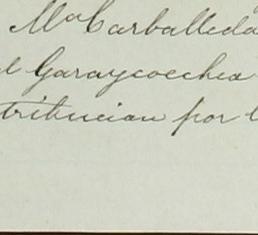 Mª Carballeda
l Garaycochea
tribucion por l